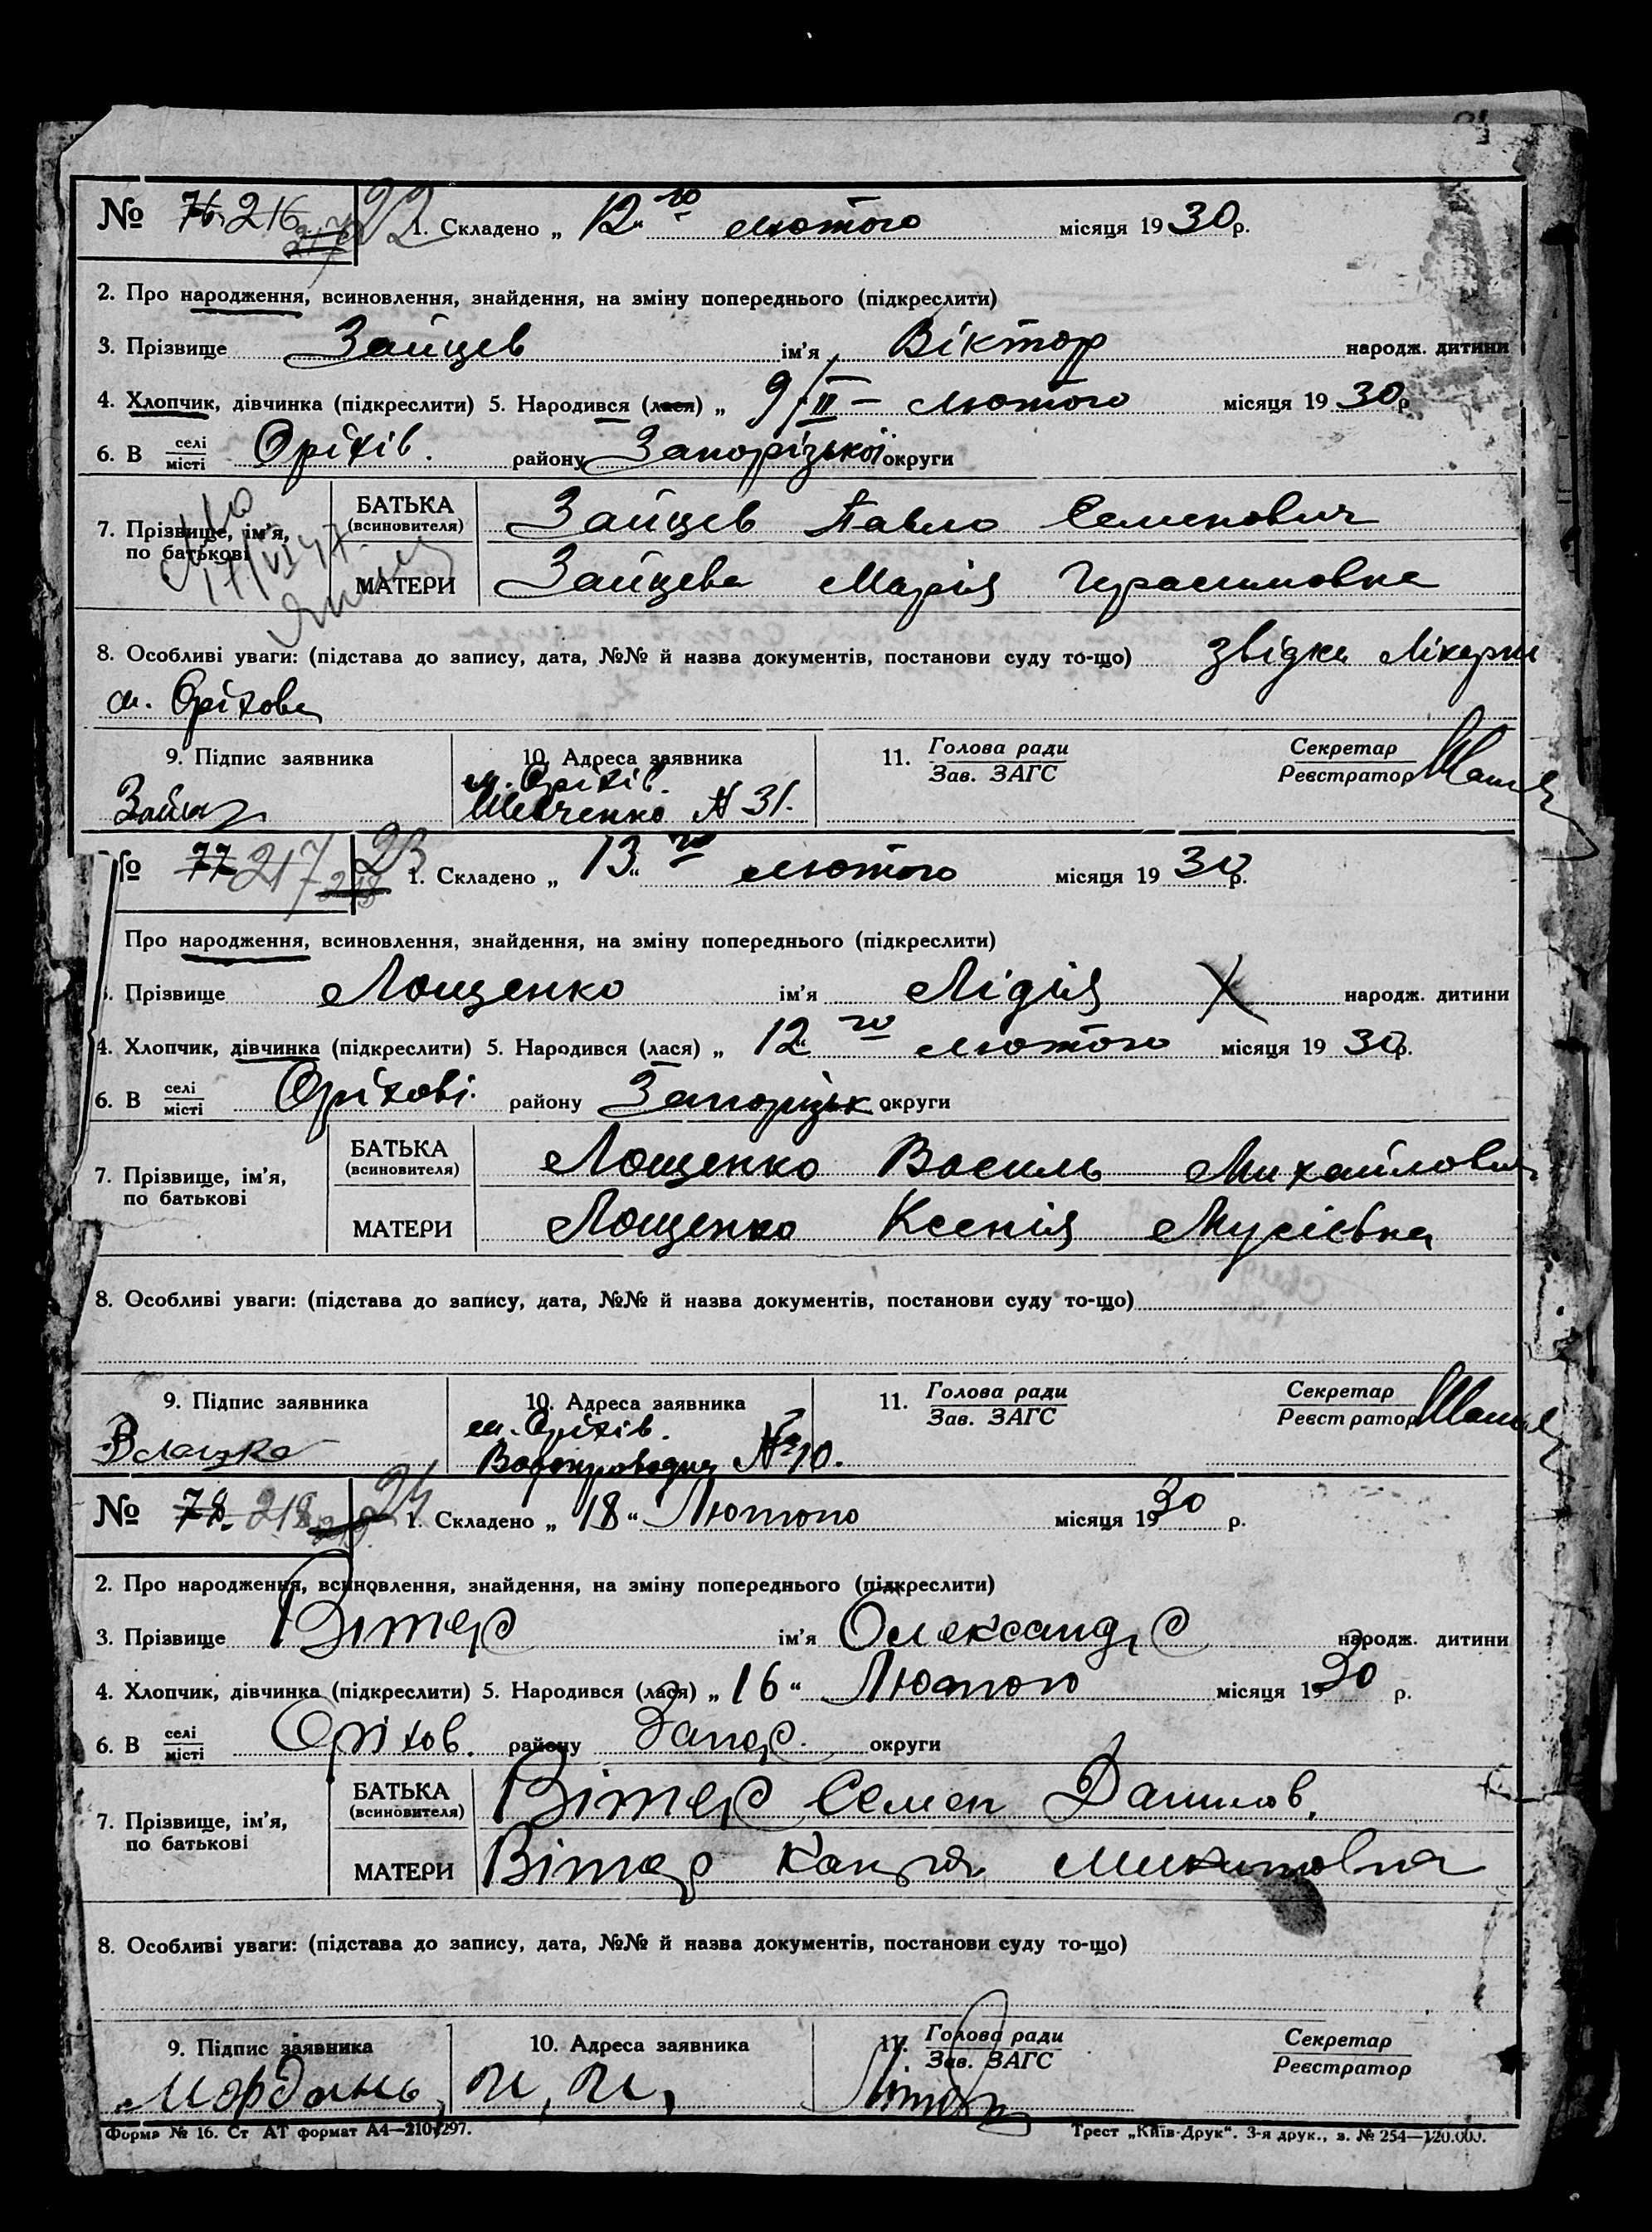 № 76. 216 22 1. Складено „ 12 го “ лютого місяця 1930 р.
2. Про народження, всиновлення, знайдення, на зміну попереднього (підкреслити)
3. Прізвище Зайцев ім’я Віктор народж. дитини
4. Хлопчик, дівчинка (підкреслити) 5. Народився (лася) „ 9/II – лютого місяця 1930 р
6. В селі місті Оріхів. району Запорізької округи
7. Прізвище, ім’я, по батькові
БАТЬКА (всиновителя) Зайцев Павло Семенович
МАТЕРИ Зайцева Марія Герасимовна
8. Особливі уваги: (підстава до запису, дата, №№ й назва документів, постанови суду то-що) звідка Лікарні
м. Оріхова
9. Підпис заявника 10. Адреса заявника 11. Голова ради Зав. ЗАГС Секретар Реєстратор
м. Оріхів.
Шевченко № 31.
№ 77 217 218 23 1. Складено „ 13 го “ лютого місяця 1930 р.
Про народження, всиновлення, знайдення, на зміну попереднього (підкреслити)
3. Прізвище Лощенко ім’я Лідія X народж. дитини
4. Хлопчик, дівчинка (підкреслити) 5. Народився (лася) „ 12 го “ лютого місяця 1930 р.
6. В селі місті Оріхові. району Запорізьк округи
7. Прізвище, ім’я, по батькові
БАТЬКА (всиновителя) Лощенко Василь Михайлович
МАТЕРИ Лощенко Ксенія Мусієвна
8. Особливі уваги: (підстава до запису, дата, №№ й назва документів, постанови суду то-що)
9. Підпис заявника 10. Адреса заявника 11. Голова ради Зав. ЗАГС Секретар Реєстратор
м. Оріхів.
Водопроводна № 10.
№ 78. 218 24 1. Складено „ 18 “ Лютого місяця 1930 р.
2. Про народження, всиновлення, знайдення, на зміну попереднього (підкреслити)
3. Прізвище Вітер ім’я Олександр народж. дитини
4. Хлопчик, дівчинка (підкреслити) 5. Народився (лася) „ 16 “ Лютого місяця 1930 р.
6. В селі місті Оріхов. району Запор. округи
7. Прізвище, ім’я, по батькові
БАТЬКА (всиновителя) Вітер Семен Данилов.
МАТЕРИ Вітер Микитовна
8. Особливі уваги: (підстава до запису, дата, №№ й назва документів, постанови суду то-що)
9. Підпис заявника 10. Адреса заявника 11. Голова ради Зав. ЗАГС Секретар Реєстратор
Мордань
Форма № 16. Ст АТ формат А4—210×297. Трест „Київ-Друк“. 3-я друк., з. № 254—120.000.